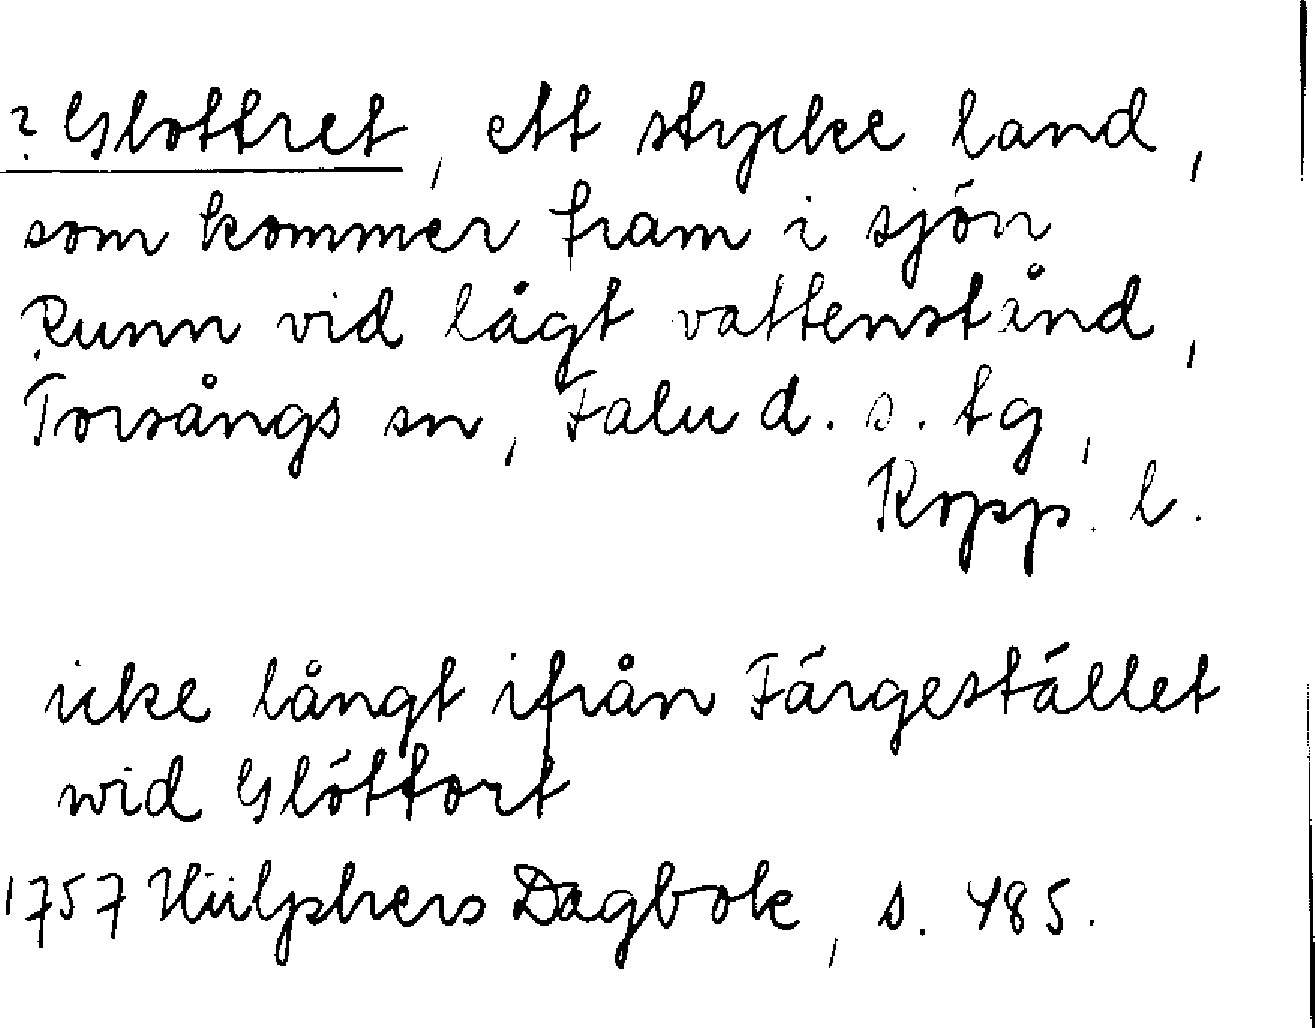 ? Glottret, ett stycke land,
som kommer fram i sjön
Runn vid lågt vattenstånd,
Torsångs sn, Falu d. s. tg,
Kopp. l.
icke långt ifrån Färgestället
wid Glöttort
1757 Hülphers Dagbok, s. 485.